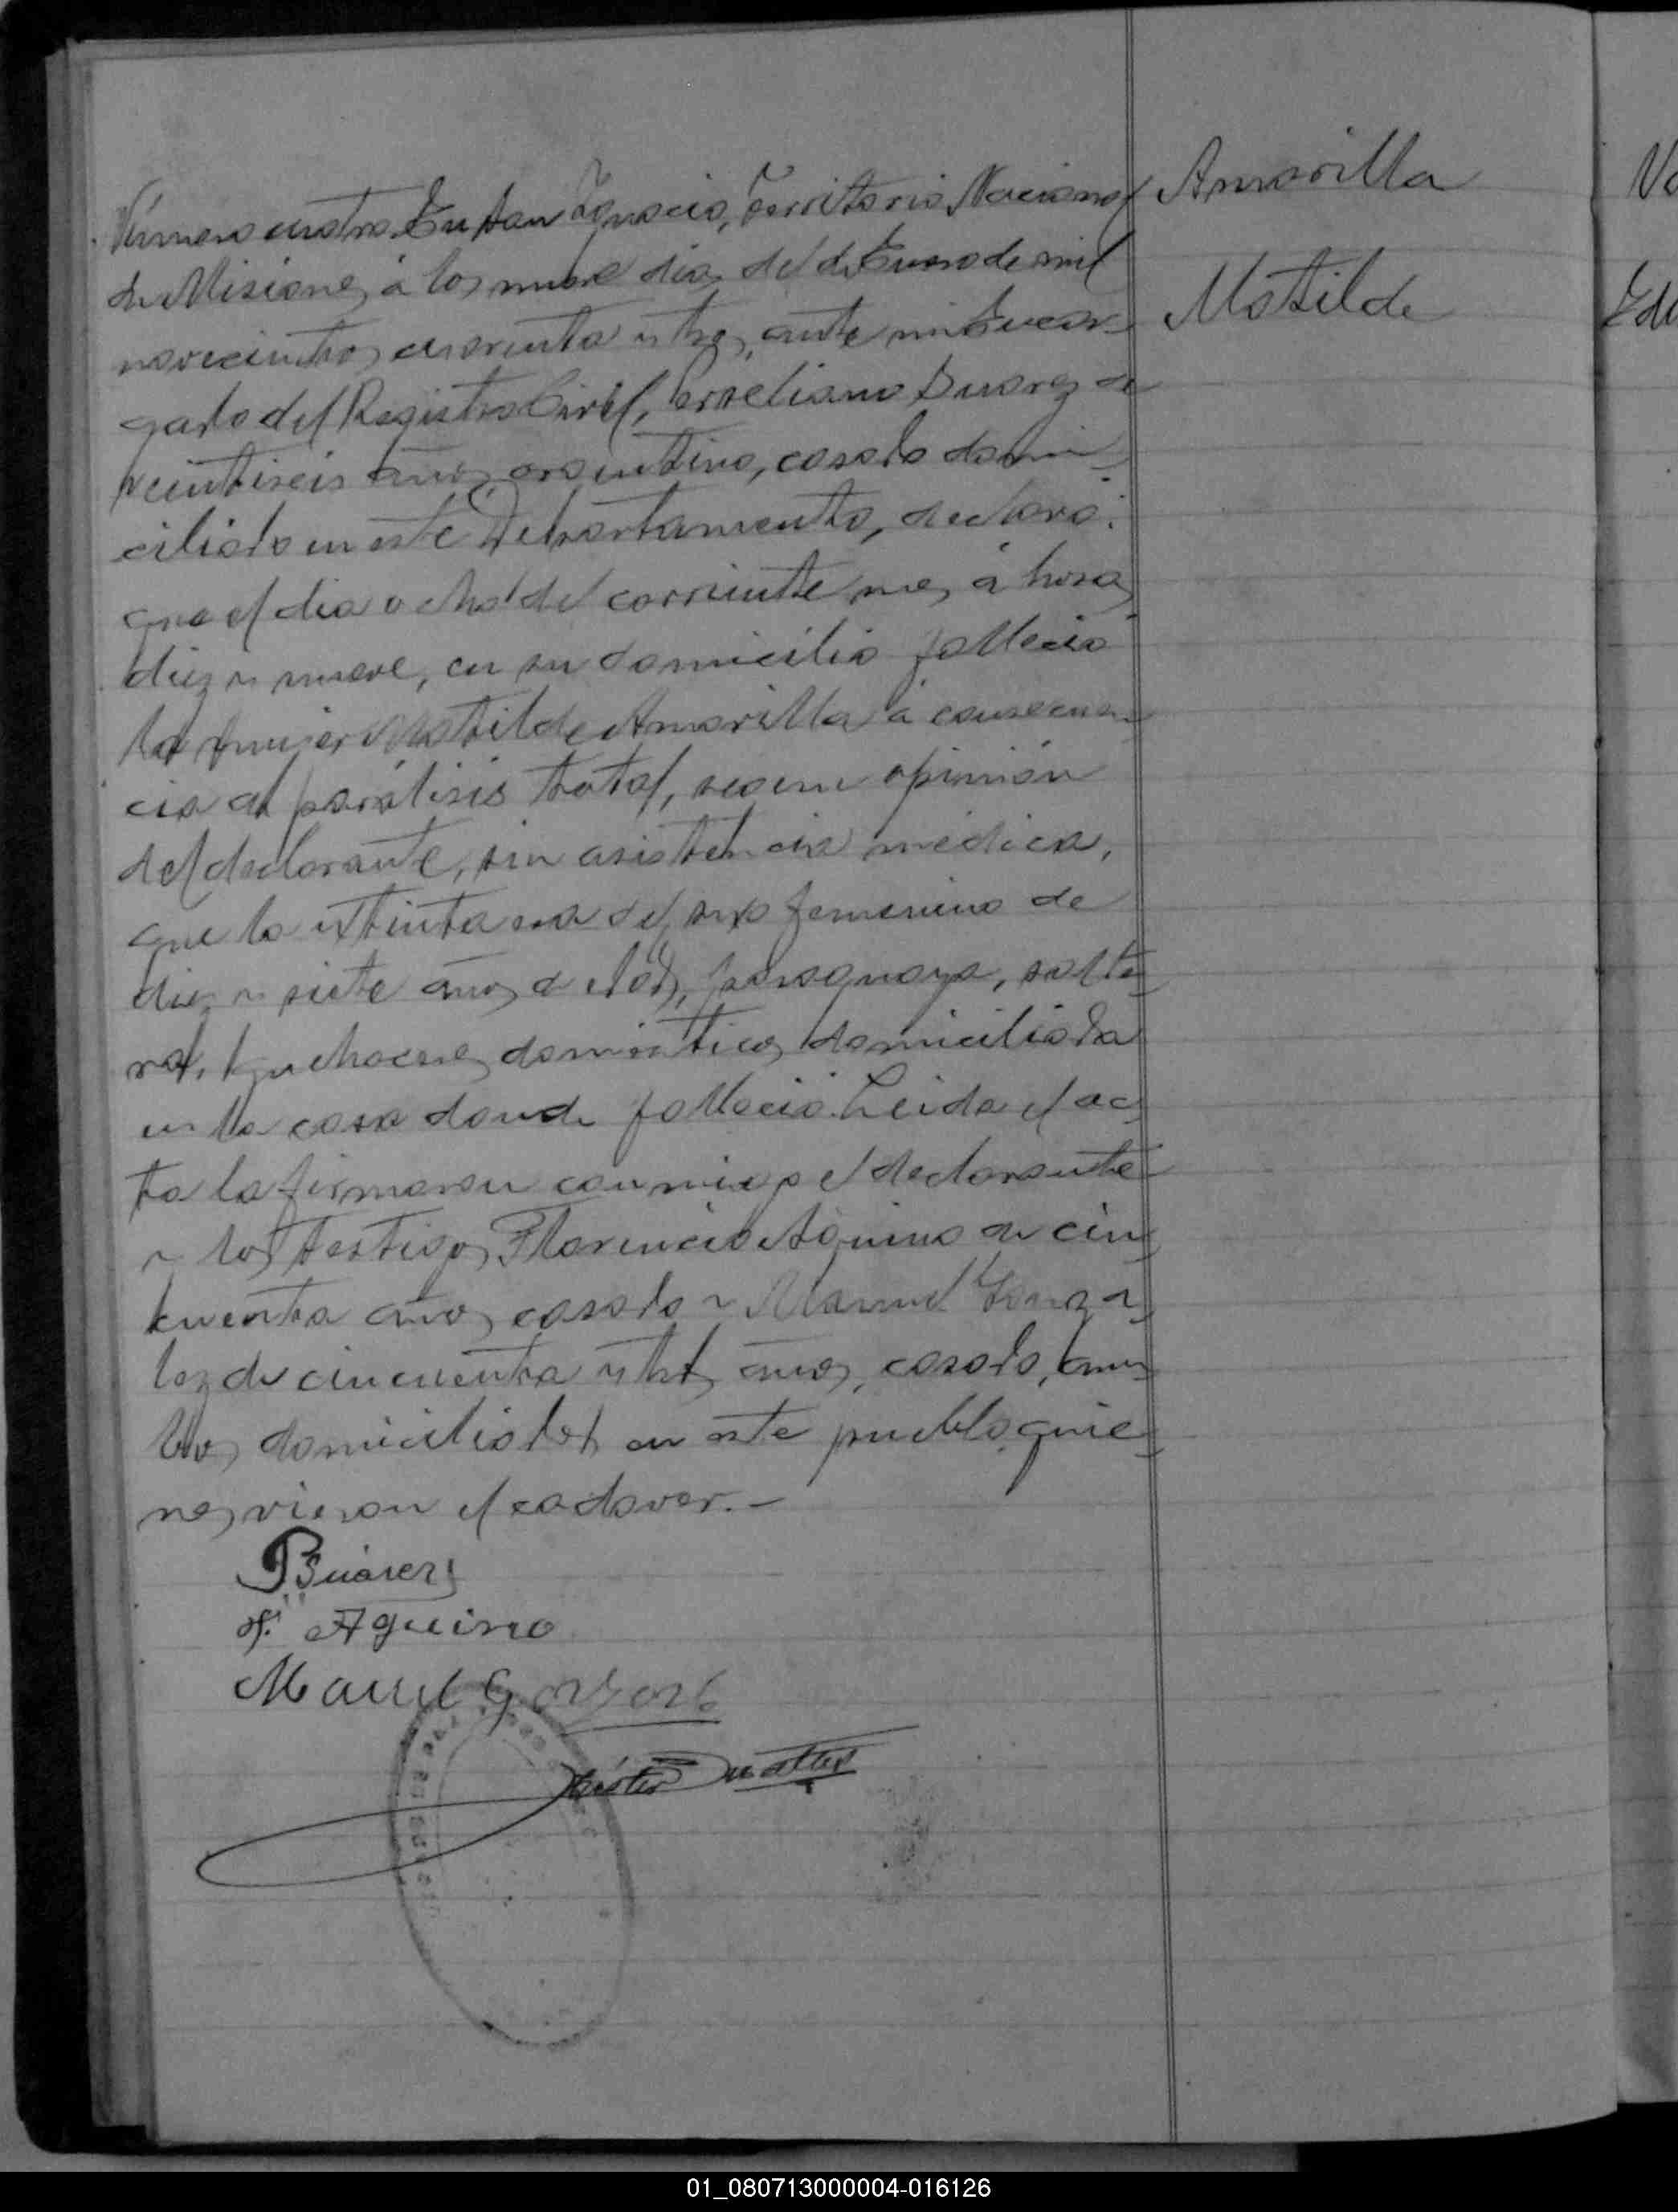 Amarilla
Matilde
Número cuatro. En San Ignacio, Territorio Nacional
de Misiones, á los nueve dias del de Enero de mil
novecientos cuarenta y tres, ante mi Encar-
gado del Registro Civil, Suarez de
veintiseis años, argentino, casado domi-
ciliado en este Departamento, declaró:
que el dia ocho del corriente mes, á horas
diez y nueve, en su domicilio falleció
la mujer Matilde Amarilla á consecuen-
cia de parálisis total, segun opinión
del declarante, sin asistencia médica,
que la extinta era del sexo femenino de
diez y siete años de edad, paraguaya, solte-
ra, quehaceres domésticos, domiciliada
en la casa donde falleció. Leida el ac-
ta la firmaron conmigo el declarante
y los testigos Florencio Aquino de cin-
cuenta años, casado y Manuel Gonza-
lez de cincuenta y tres años, casado, am-
bos domiciliados en este pueblo, quie-
nes vieron el cadaver.-
P Suárez
F. Aquino
Manuel
01_080713000004-016126